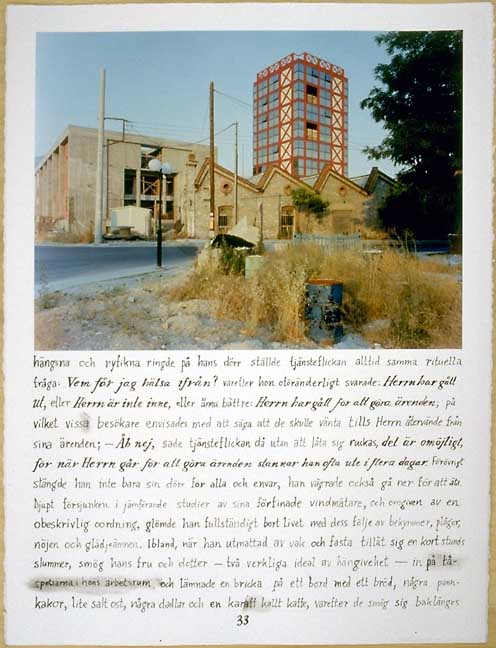 hängivna och nyfikna ringde på hans dörr ställde tjänsteflickan alltid samma rituella
fråga: Vem får jag hälsa ifrån? varefter hon oföränderligt svarade: Herrn har gått
ut, eller Herrn är inte inne, eller ännu bättre: Herrn har gått för att göra ärenden; på
vilket vissa besökare envisades med att säga att de skulle vänta tills Herrn återvände från
sina ärenden; – Åh nej, sade tjänsteflickan då utan att låta sig ruckas, det är omöjligt,
för när Herrn går för att göra ärenden stannar han ofta ute i flera dagar. Förövrigt
stängde han inte bara sin dörr för alla och envar, han vägrade också gå ner för att äta.
Djupt försjunken i jämförande studier av sina förfinade vindmätare, och omgiven av en
obeskrivlig oordning, glömde han fullständigt bort livet med dess följe av bekymmer, plågor,
nöjen och glädjeämnen. Ibland, när han utmattad av vak och fasta tillät sig en kort stunds
slummer, smög hans fru och dotter – två verkliga ideal av hängivenhet – in på tå-
spetsarna i hans arbetsrum, och lämnade en bricka på ett bord med ett bröd, några pann-
kakor, lite salt ost, några dadlar och en karaff kallt kaffe, varefter de smög sig baklänges
33